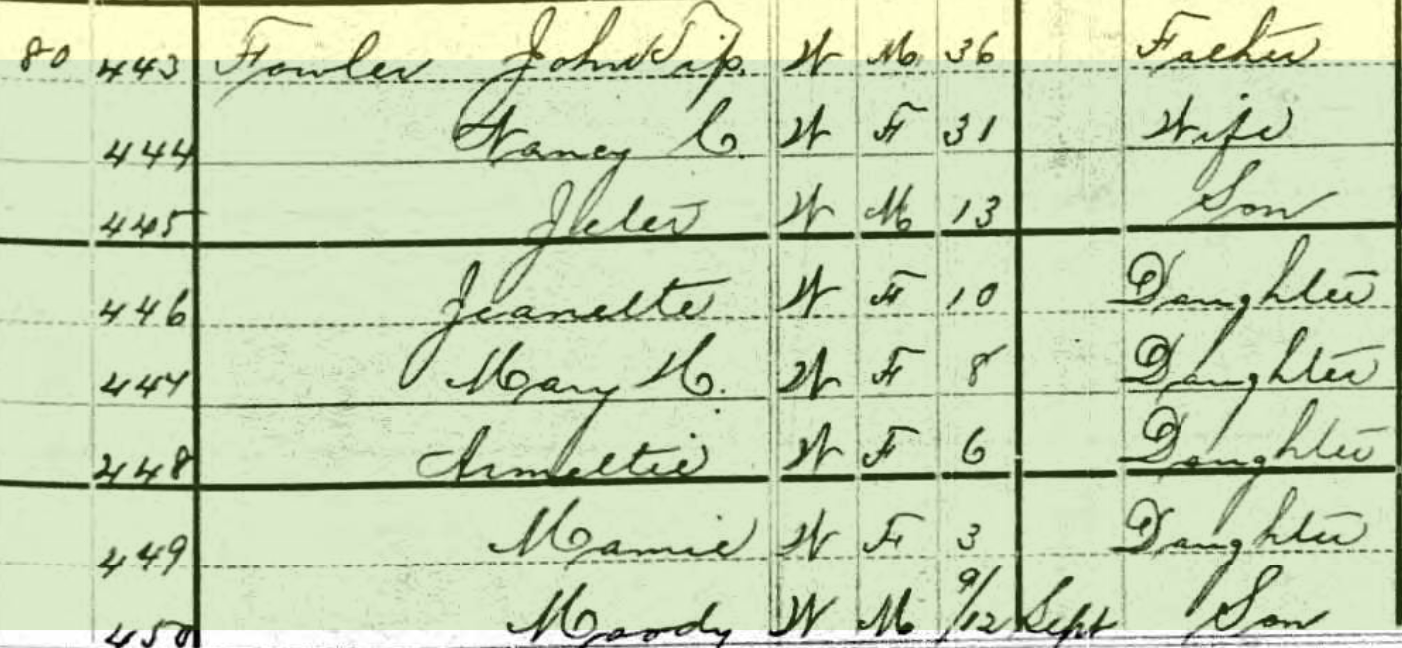 80 443 Fowler John Tip. W M 36 Father
444 Nancy C. W F 31 Wife
445 Jeter W M 13 Son
446 Jeanette W F 10 Daughter
447 Mary H. W F 8 Daughter
448 W F 6 Daughter
449 Mamie W F 3 Daughter
450 Moody W M 9/12 Sept Son